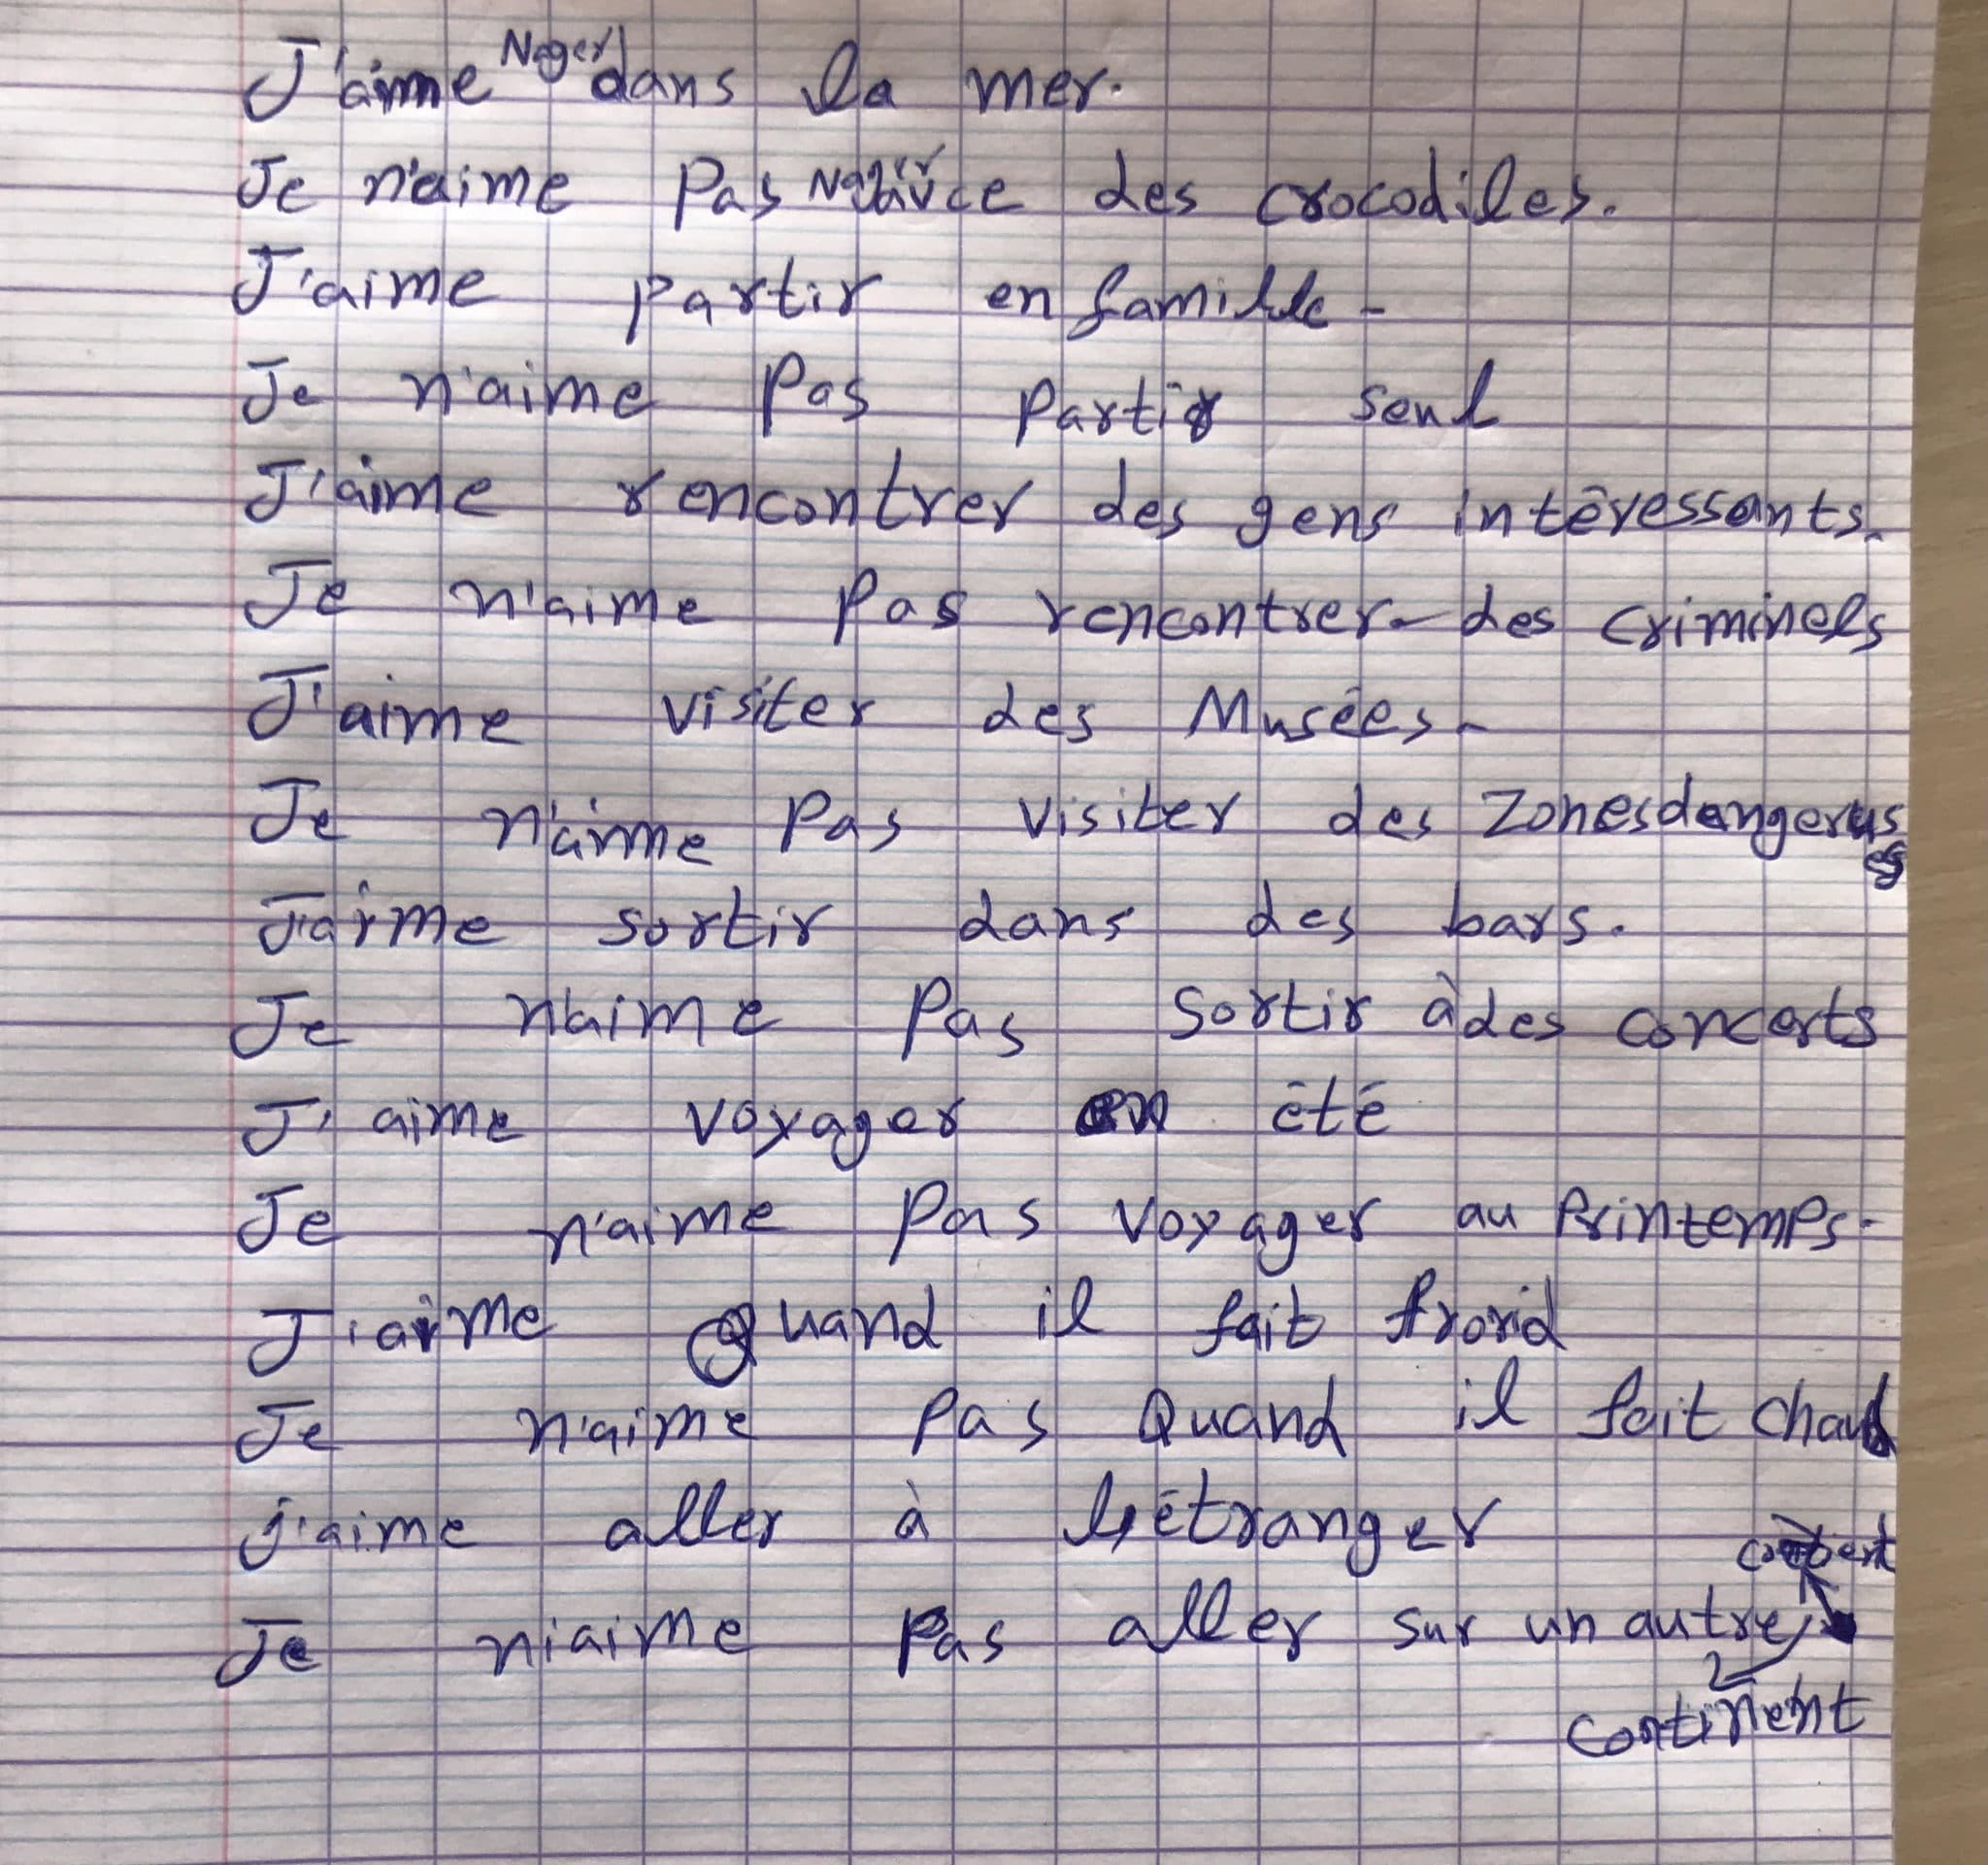 J'aime Nager dans la mer.
Je n'aime Pas des crocodiles.
J'aime partir en famille -
Je n'aime Pas Partir seul
J'aime rencontrer des gens intéressants.
Je n'aime Pas rencontrer des criminels
J'aime visiter des Musées -
Je n'aime Pas visiter des Zones
J'aime sortir dans des bars.
Je n'aime Pas sortir à des concerts
J'aime voyager en été
Je n'aime Pas voyager au Printemps.
J'aime Quand il fait froid
Je n'aime Pas Quand il fait chaud
j'aime aller à l'étranger
Je n'aime Pas aller sur un autre
continent